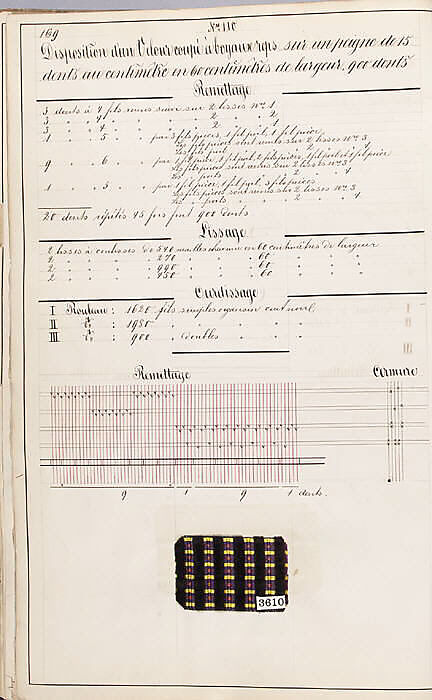 169
N° 110
Disposition d'un Velours coupé à boyaux reps sur un peigne de 15
dents au centimètre en 60 centimètres de largeur, 900 dents
Remettage
3 dents à 4 fils sur 2 lisses N° 1
3 " 4 " " 2 " 2
3 " 4 " " 2 " 1
1 " 5 " par 3 fils pièces, 1 fil poil, 1 fil pièce
les fils pièces sur 2 lisses N° 3
9 " 6 " par 1 fil pièce, 1 fil poil, 2 fils pièces, 1 fil poil et 1 fil pièce
les fils pièces sur 2 lisses N° 3
1 " 5 " par 1 fil pièce, 1 fil poil, 3 fils pièces
les fils pièces sont remis sur 2 lisses N° 3
" poils " 2 " 4
20 dents répétés 45 fois font 900 dents
Lissage
2 lisses à coulisses de 540 mailles chacune en 60 centimètres de largeur
2 " " 270 " " 60
2 " " 990 " " 60
2 " " 450 " " 60
Ourdissage
I Rouleau : 1620 fils simples organsin cuit noir
II d° : 1980
III d° : 900 " doubles
I
II
III
Remettage
Armure
9 1 9 1 dents.
3610